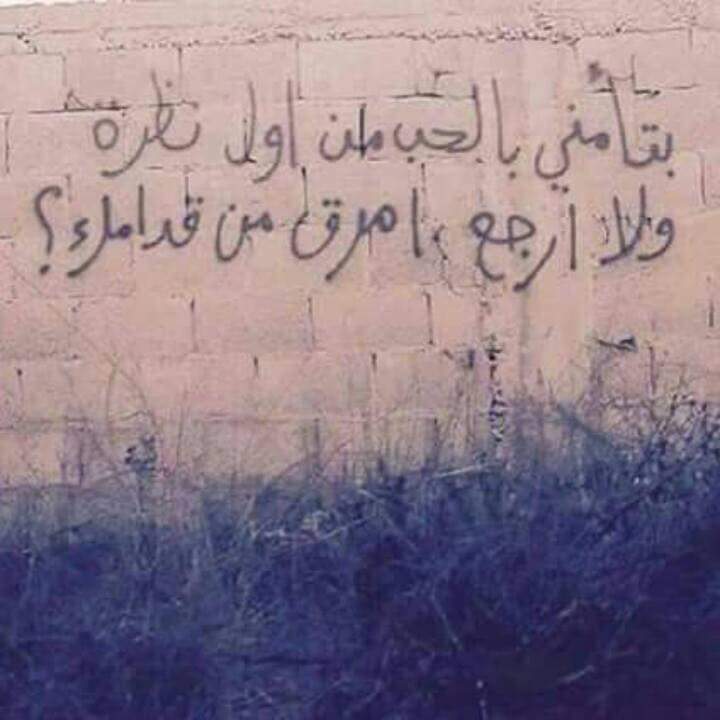 بتأمني بالحب من اول نظره
ولا أرجع امرق من قدامك؟